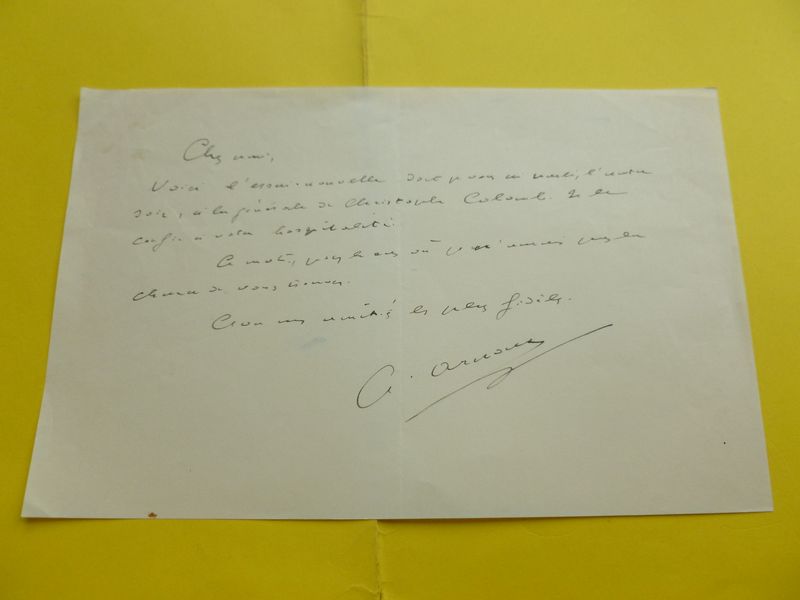 Cher ami,
Voici l'essai-nouvelle dont je vous ai parlé, l'autre
soir, à la générale de Christophe Colomb. Je le
confie à votre hospitalité.
Ce mot, pour le cas où je n'aurais pas la
chance de vous trouver.
Croyez mes amitiés les plus fidèles.
A. Arnoux